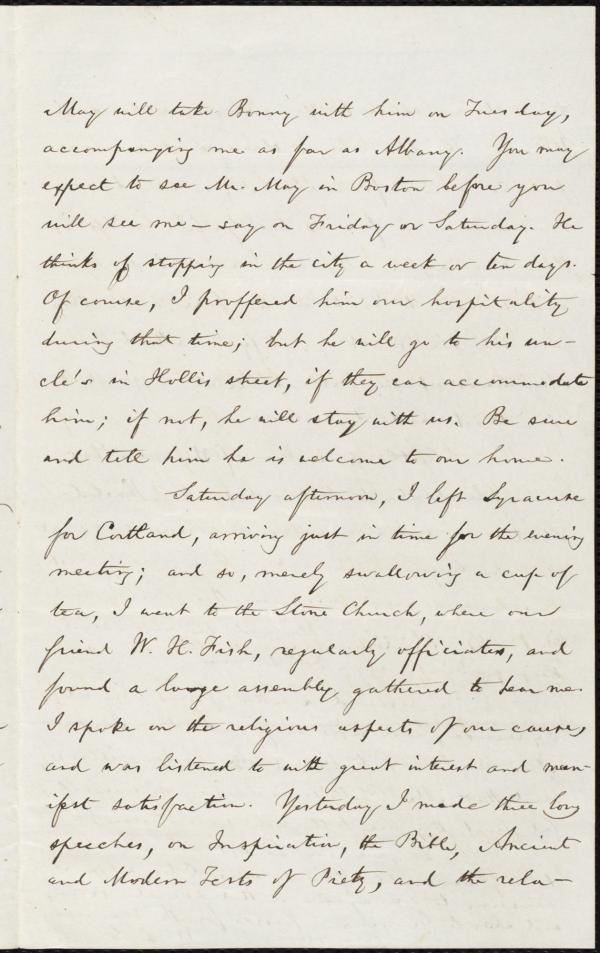 May will take Bonny with him on Tuesday,
accompanying me as far as Albany. You may
expect to see Mr. May in Boston before you
will see me — say on Friday or Saturday. He
thinks of stopping in the city a week or ten days.
Of course, I proffered him our hospitality
during that time; but he will go to his un-
cle's in Hollis street, if they can accommodate
him; if not, he will stay with us. Be sure
and tell him he is welcome to our home.
Saturday afternoon, I left Syracuse
for Cortland, arriving just in time for the evening
meeting; and so, merely swallowing a cup of
tea, I went to the Stone Church, where our
friend W. H. Fish, regularly officiates, and
found a large assembly gathered to hear me.
I spoke on the religious aspects of our cause,
and was listened to with great interest and man-
ifest satisfaction. Yesterday I made three long
speeches, on Inspiration, the Bible, Ancient
and Modern Tests of Piety, and the rela-